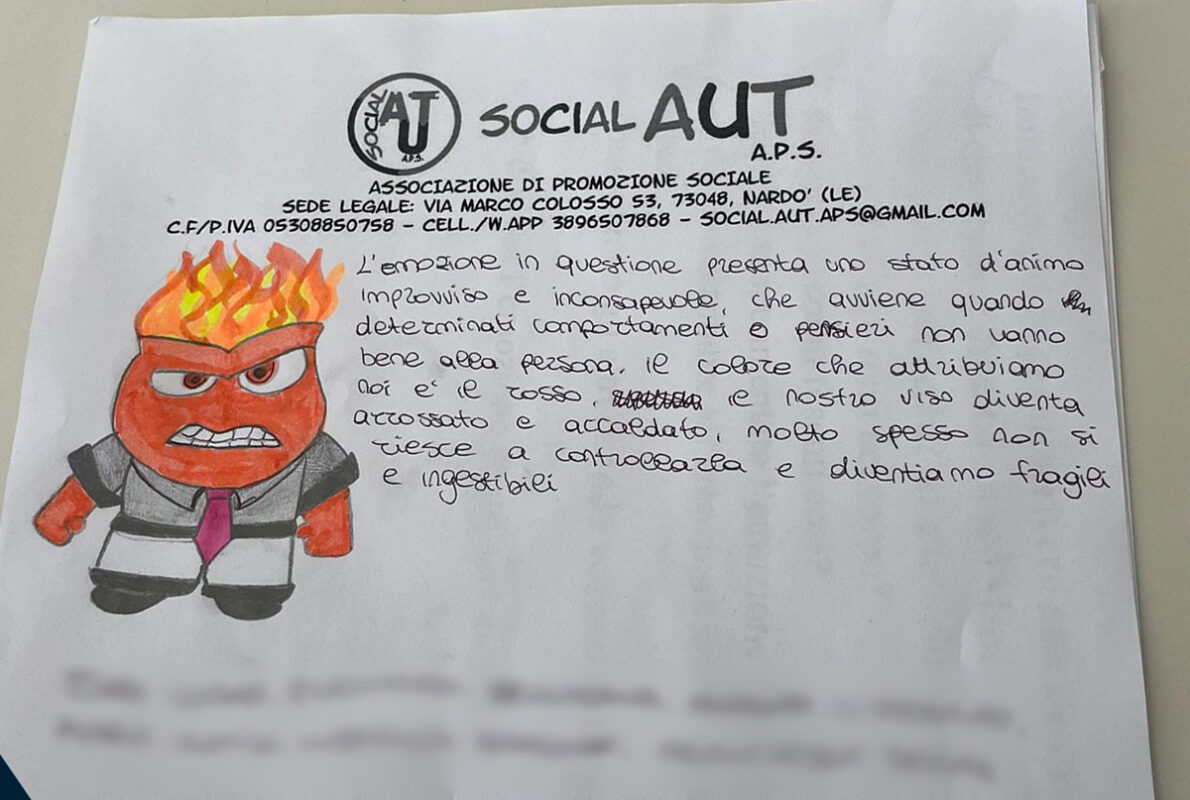 SOCIAL AUT A.P.S.
SOCIAL AUT
A.P.S.
ASSOCIAZIONE DI PROMOZIONE SOCIALE
SEDE LEGALE: VIA MARCO COLOSSO 53, 73048, NARDO' (LE)
C.F/P.IVA 05308850758 - CELL./W.APP 3896507868 - SOCIAL.AUT.APS@GMAIL.COM
L'emozione in questione presenta uno stato d'animo
improvviso e inconsapevole, che avviene quando
determinati comportamenti o pensieri non vanno
bene alla persona. il colore che attribuiamo
noi e' il rosso, il nostro viso diventa
arrossato e accaldato, molto spesso non si
riesce a controllarla e diventiamo fragili
e ingestibili